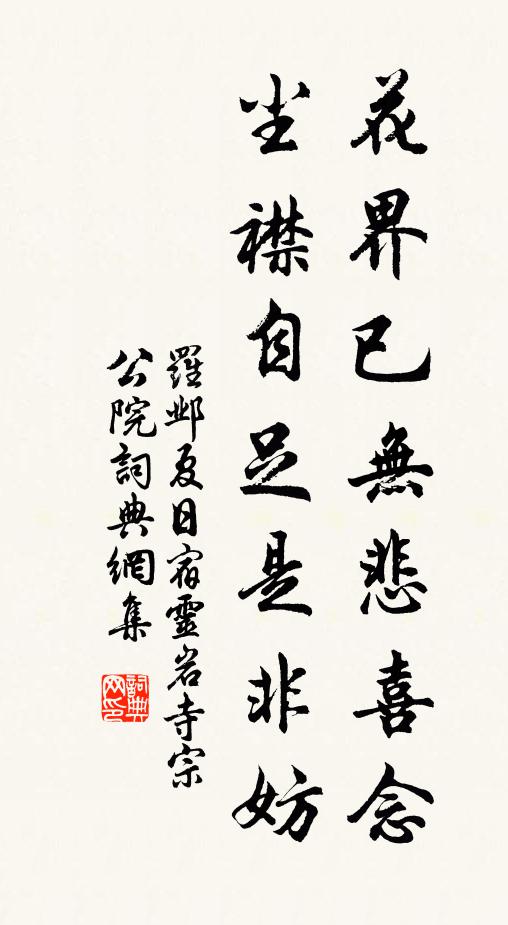 花界已無悲喜念
尘襟自足是非妨
羅邺夏日宿靈岩寺宗
公院詞典網集
詞典
网印